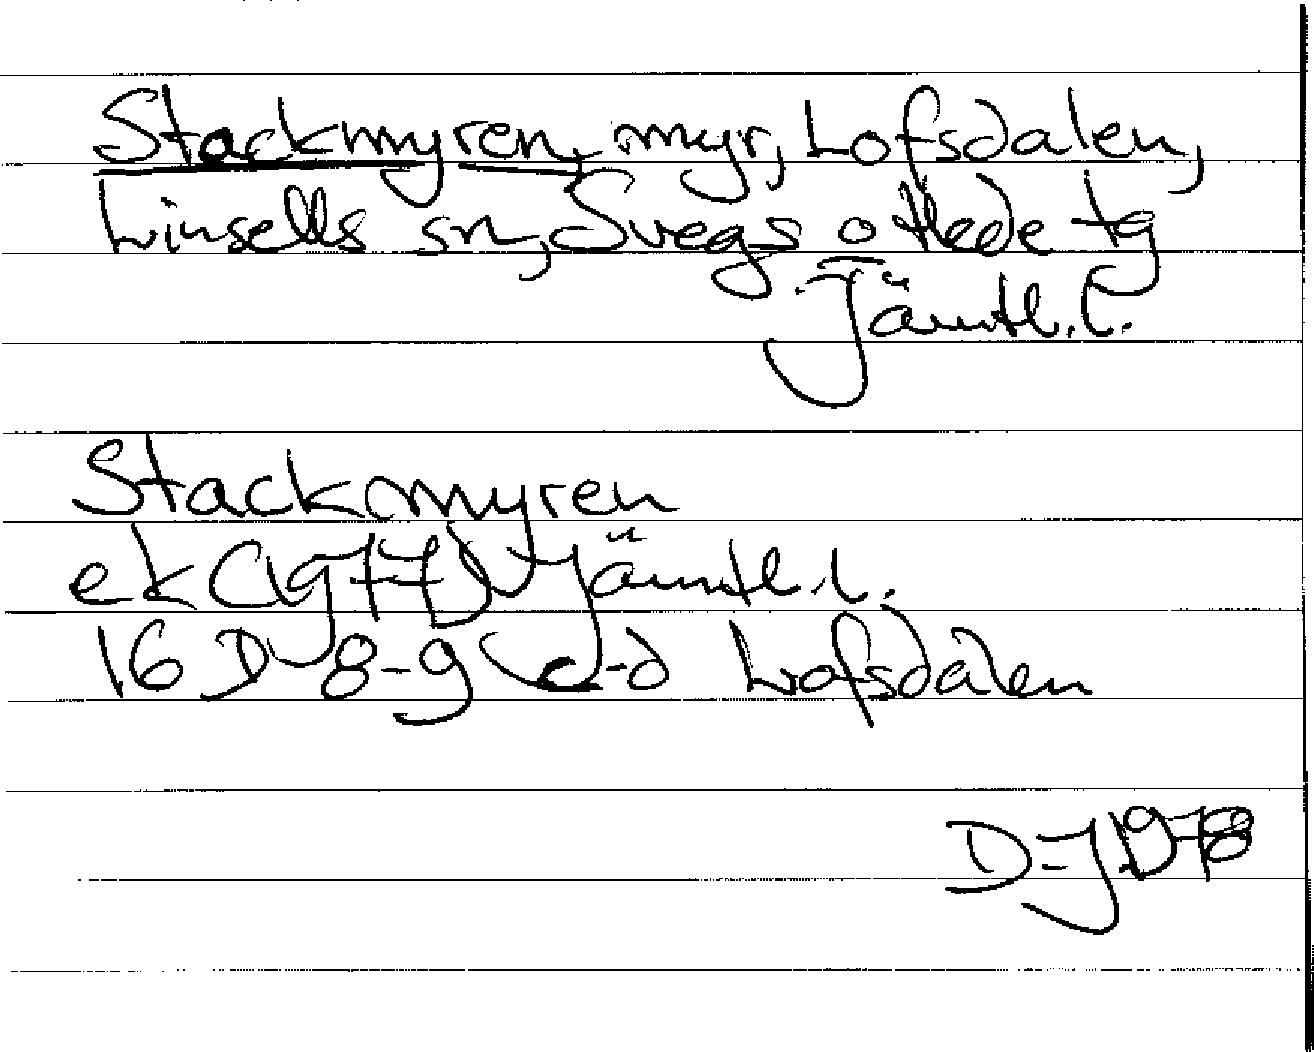 Stackmyren, myr, Lofsdalen,
Linsells sn, Svegs o Hede tg
Jämtl. l.
Stackmyren
ek (1977) Jämtl. l.
16 D 8-9 c-d Lofsdalen
D-J 1978